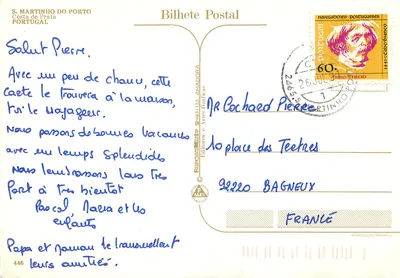 S. MARTINHO DO PORTO
Costa de Prata
PORTUGAL
Bilhete Postal
Salut Pierre.
Avec un peu de chance, cette
Carte te trouvera à la maison,
toi le voyageur.
Nous passons de bonnes vacances
avec un temps splendide
Nous t'embrassons tous très
fort à très bientôt
Pascal, Maria et les
enfants
Papa et Maman te transmettent
leurs amitiés.
446
navegadores portugueses
60.
Mr Cochard Pierre
10 place des Tertres
92220 BAGNEUX
FRANCE